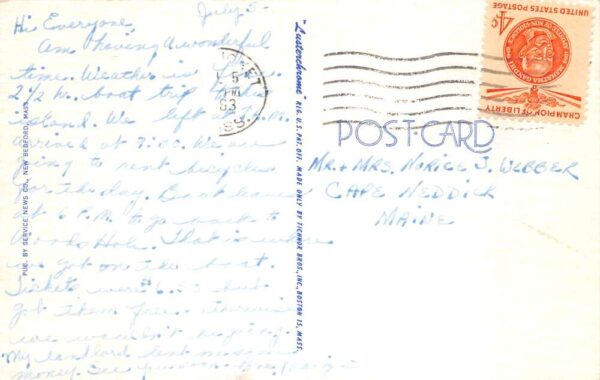 July 5-
Hi Everyone
Am having a wonderful
time. Weather is
2 1/2 hr. boat trip to the
island. We left at
arrived at 9:00. We are
going to rent bicycles
for the day. Boat leaves
at 6 P.M. to go back to
Woods Hole. That is where
we got on the boat.
Tickets were 6.50 but
got them free. Otherwise
we wouldn't be going.
My landlord lent me some
money. See you soon Love,
PUB. BY SERVICE NEWS CO., NEW BEDFORD, MASS.
"Lusterchrome" REG. U.S. PAT. OFF. MADE ONLY BY TICHNOR BROS., INC., BOSTON 15, MASS.
5
63
POST CARD
MR. + MRS. NORICE J. WEBBER
CAPE NEDDICK
MAINE
CHAMPION OF LIBERTY
4¢
UNITED STATES POSTAGE